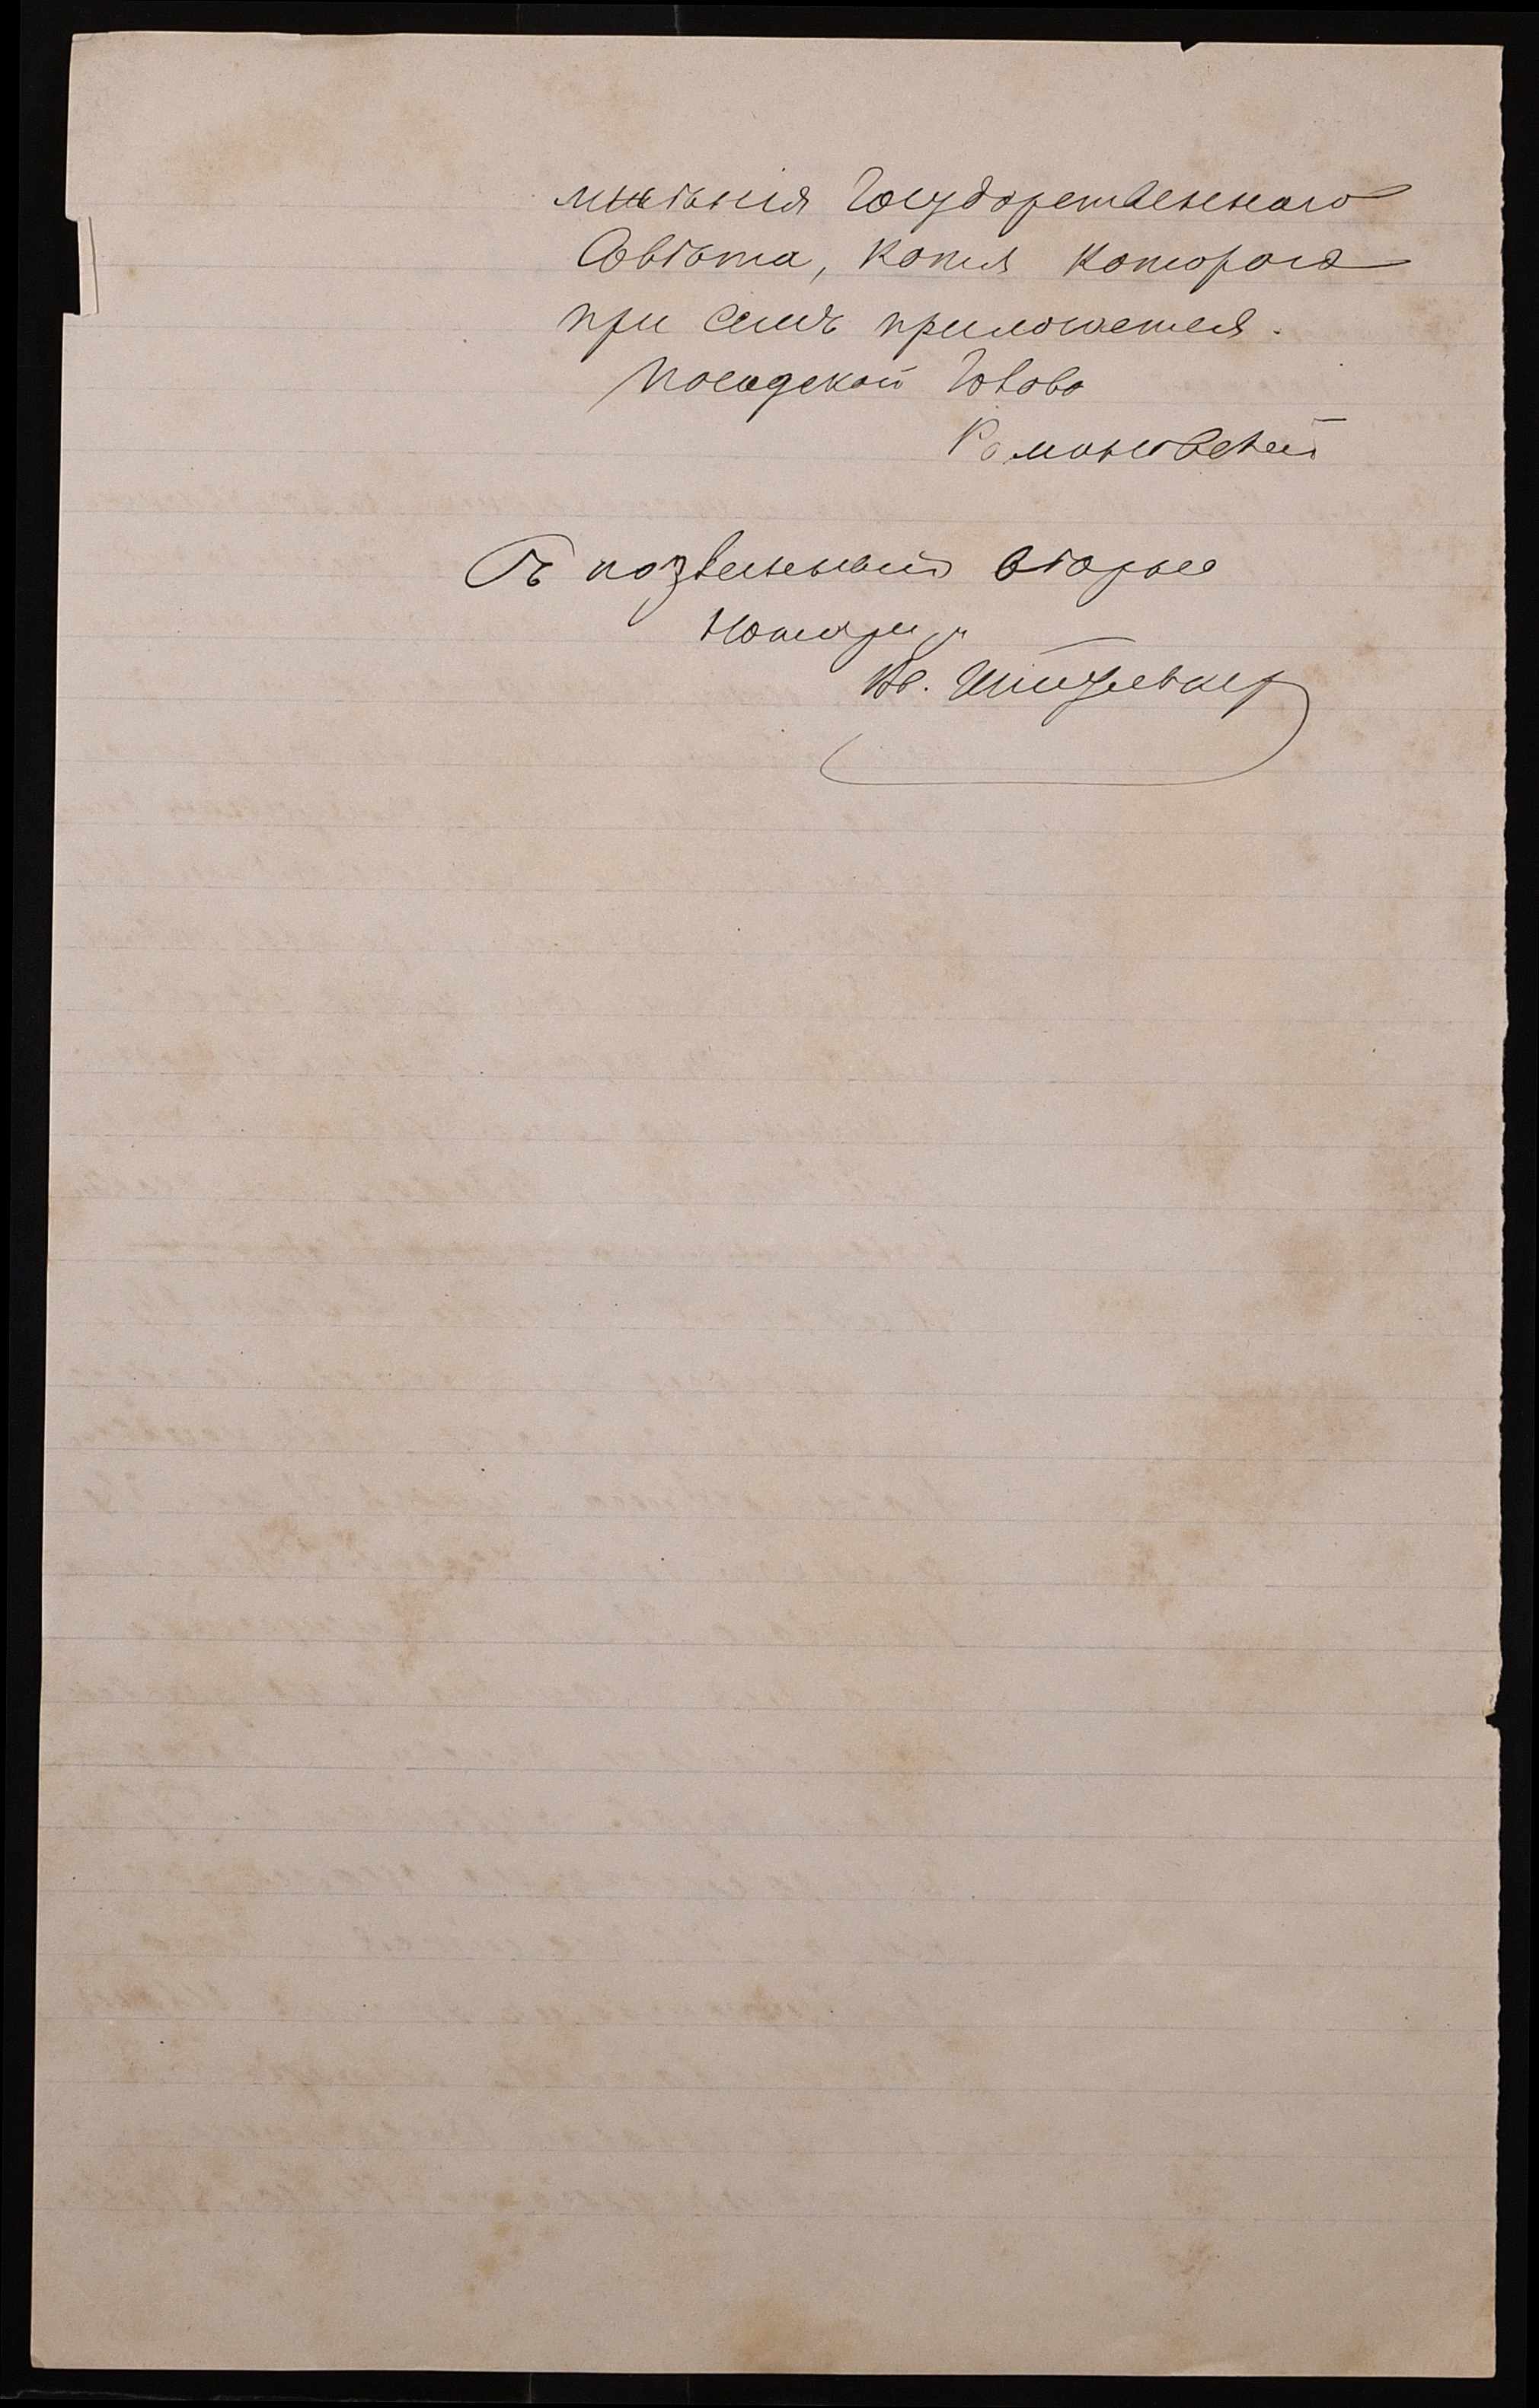 мнѣнія Государственнаго
Совѣта, копія котораго
при семъ приложается.
Посадской Голова
Романовскій
Съ подлиннымъ вѣрно
Нотаріусъ